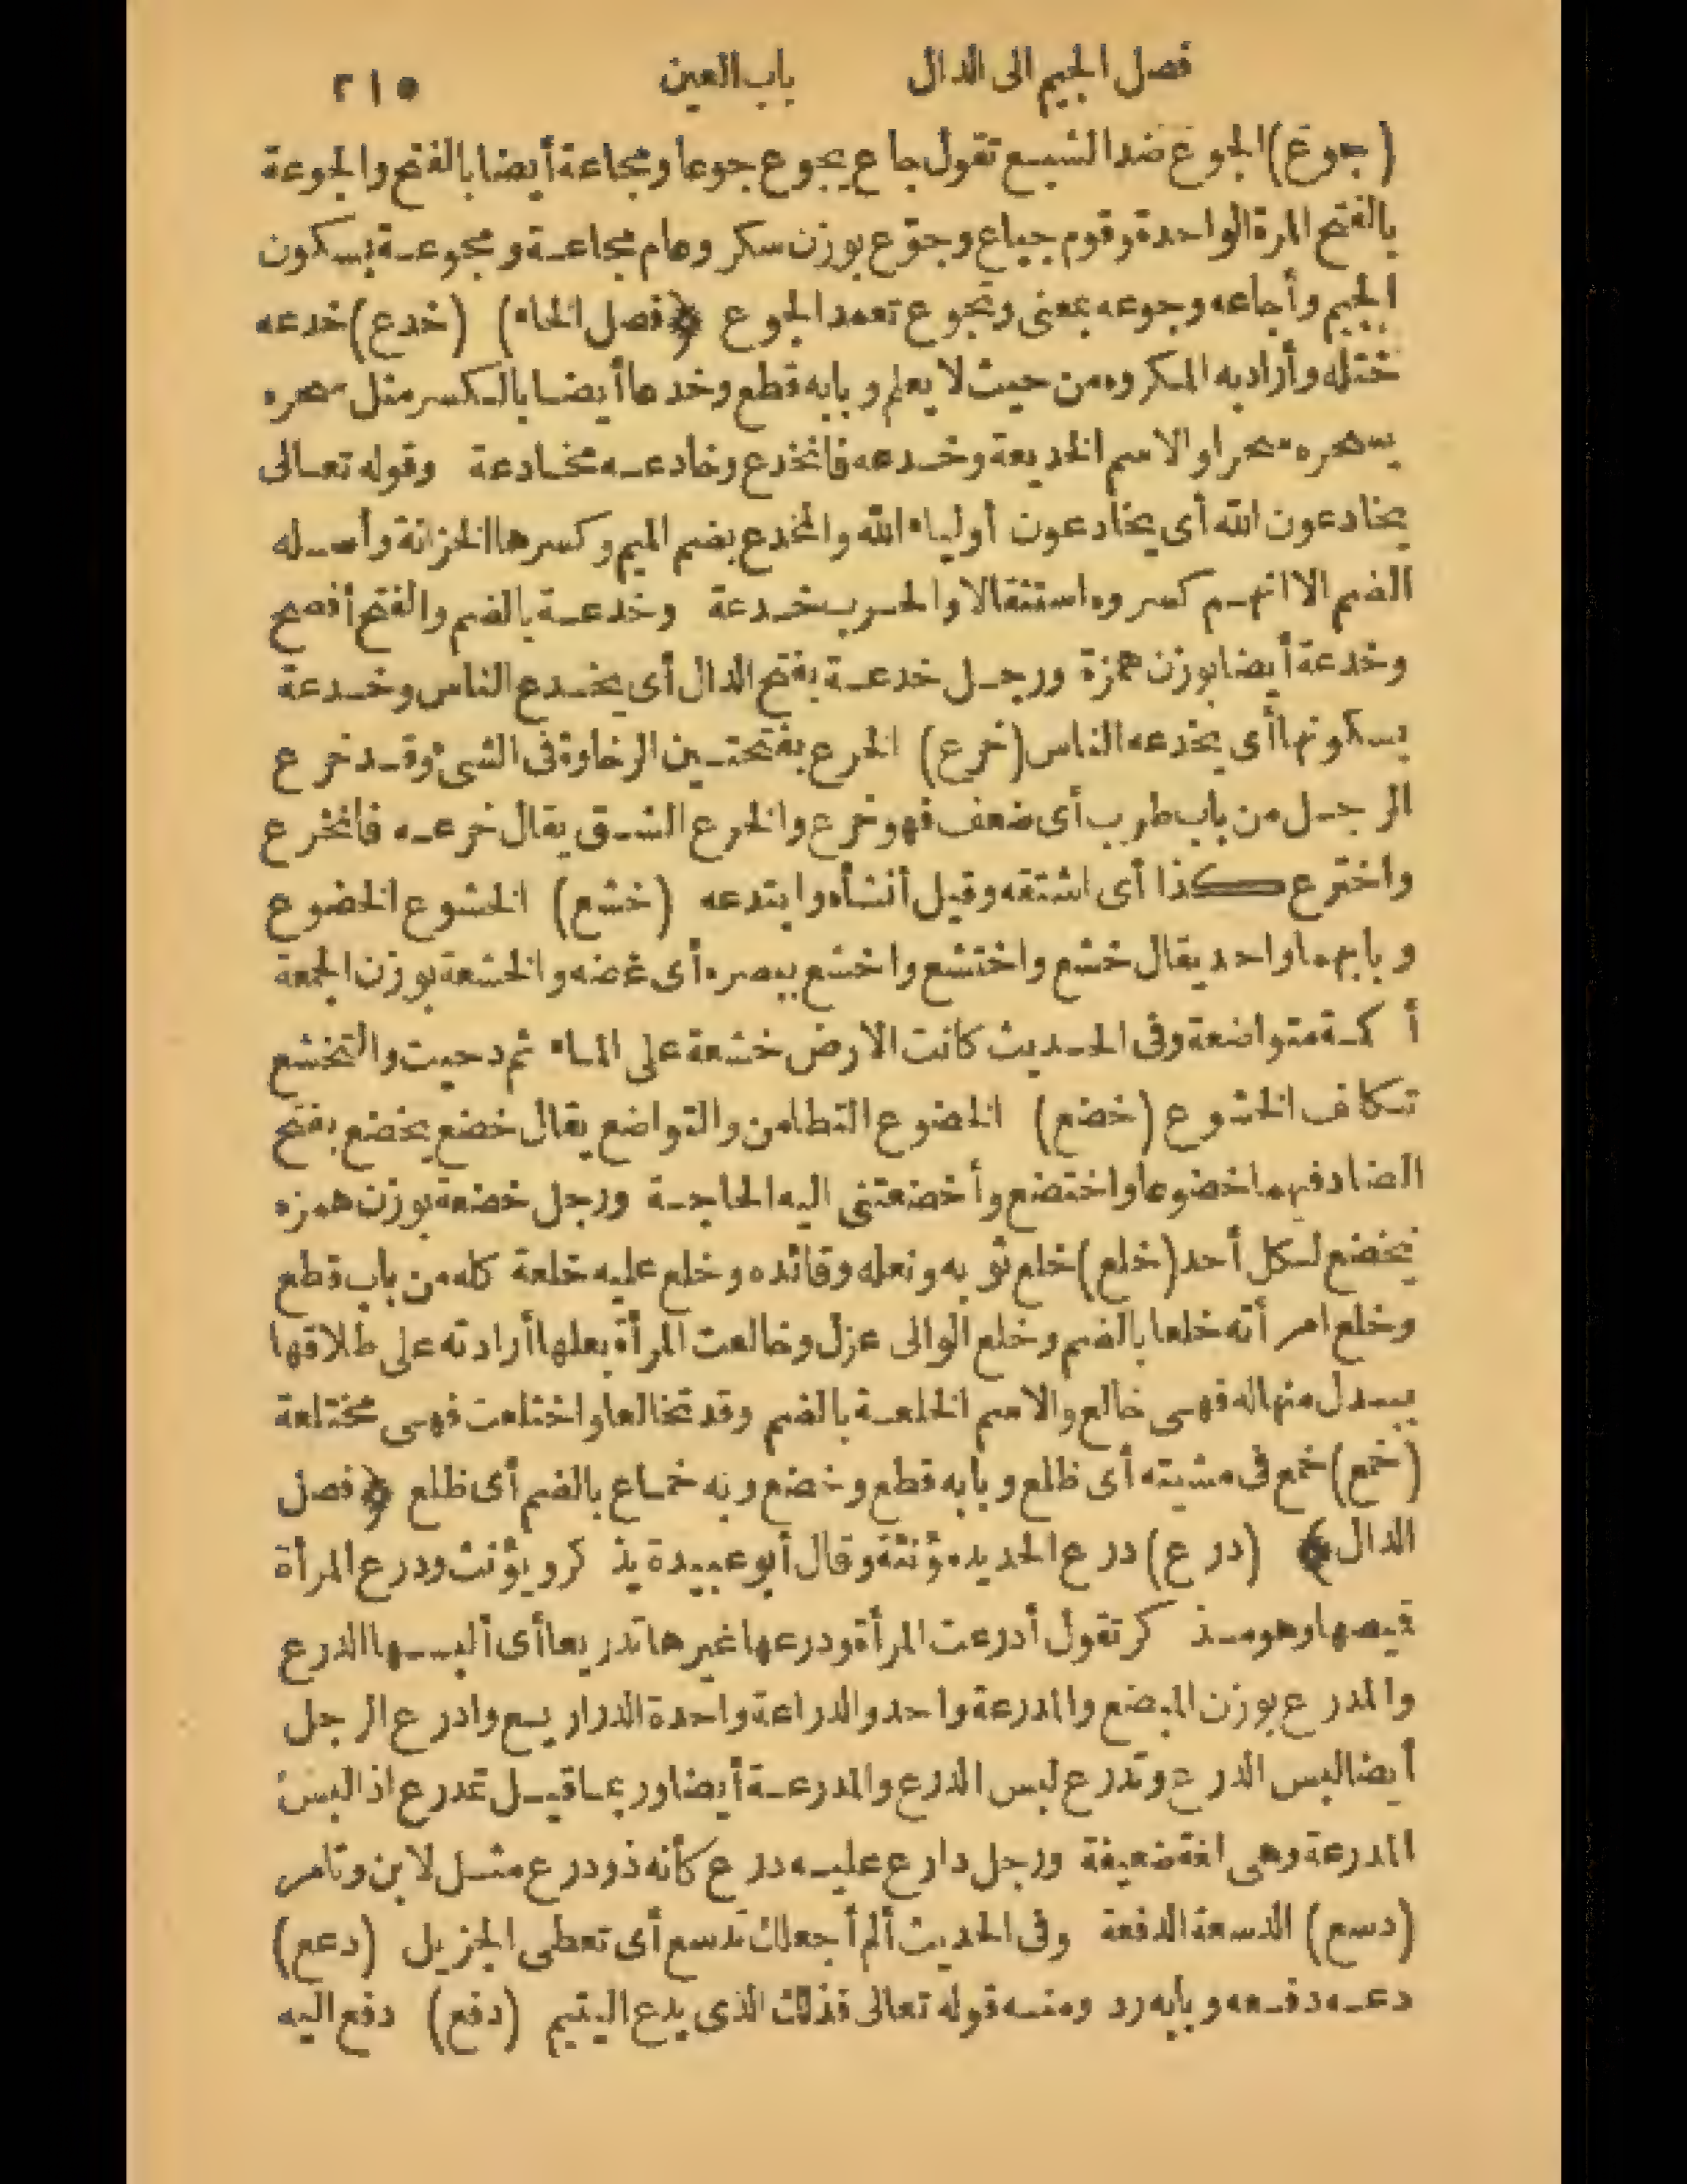 فصل الجيم الى الدال باب العين ٢١٥
(جوع) الجوع ضد الشبع تقول جاع يجوع جوعا ومجاعة أيضا بالفتح والجوعة
بالفتح المرة الواحدة وقوم جياع وجوّع بوزن سكر وعام مجاعة ومجوعة بسكون
الجيم وأجاعه وجوعه بمعنى وتجوع تعمد الجوع ﴿فصل الخاء﴾ (خدع) خدعه
ختله وأراد به المكروه من حيث لا يعلم وبابه قطع وخدعا أيضا بالكسر مثل سحره
يسحره سحرا والاسم الخديعة وخدعه فانخدع وخادعه مخادعة وقوله تعالى
يخادعون الله أى يخادعون أولياء الله والمخدع بضم الميم وكسرها الخزانة وأصله
الضم الا انهم كسروه استثقالا والحرب خدعة وخدعة بالضم والفتح أفصح
وخدعة أيضا بوزن همزة ورجل خدعة بفتح الدال أى يخدع الناس وخدعة
بسكونها أى يخدعه الناس (خرع) الخرع بفتحتين الرخاوة فى الشىء وقد خرع
الرجل من باب طرب أى ضعف فهو خرع والخرع الشق يقال خرعه فانخرع
واخترع كذا أى اشتقه وقيل أنشأه وابتدعه (خشع) الخشوع الخضوع
وبابهما واحد يقال خشع واختشع واخشع ببصره أى غضه والخشعة بوزن الجمعة
أكمة متواضعة وفى الحديث كانت الارض خشعة على الماء ثم دحيت والتخشع
تكلف الخشوع (خضع) الخضوع التطامن والتواضع يقال خضع يخضع بفتح
الضاد فيهما خضوعا واختضع وأخضعتنى اليه الحاجة ورجل خضعة بوزن همزه
يخضع لكل أحد (خلع) خلع ثوبه ونعله وقائده وخلع عليه خلعة كله من باب قطع
وخلع امرأته خلعا بالضم وخلع الوالى عزل وخالعت المرأة بعلها أرادته على طلاقها
ببدل منها له فهى خالع والاسم الخلعة بالضم وقد تخالعا واختلعت فهى مختلعة
(خمع) خمع فى مشيته أى ظلع وبابه قطع وخضع وبه خماع بالضم أى ظلع ﴿فصل
الدال﴾ (درع) درع الحديد مؤنثة وقال أبو عبيدة يذكر ويؤنث ودرع المرأة
قميصها وهو مذكر تقول أدرعت المرأة ودرعها غيرها تدريعا أى ألبسها الدرع
والمدرع بوزن المبضع والمدرعة واحد والدراعة واحدة الدراريع وادرع الرجل
أيضا لبس الدرع وتدرع لبس الدرع والمدرعة أيضا وربما قيل تمدرع اذا لبس
المدرعة وهى لغة ضعيفة ورجل دارع عليه درع كأنه ذو درع مثل لابن وتامر
(دسع) الدسعة الدفعة وفى الحديث ألم أجعلك تدسع أى تعطى الجزيل (دعع)
دعه دفعه وبابه رد ومنه قوله تعالى فذلك الذى يدع اليتيم (دفع) دفع اليه